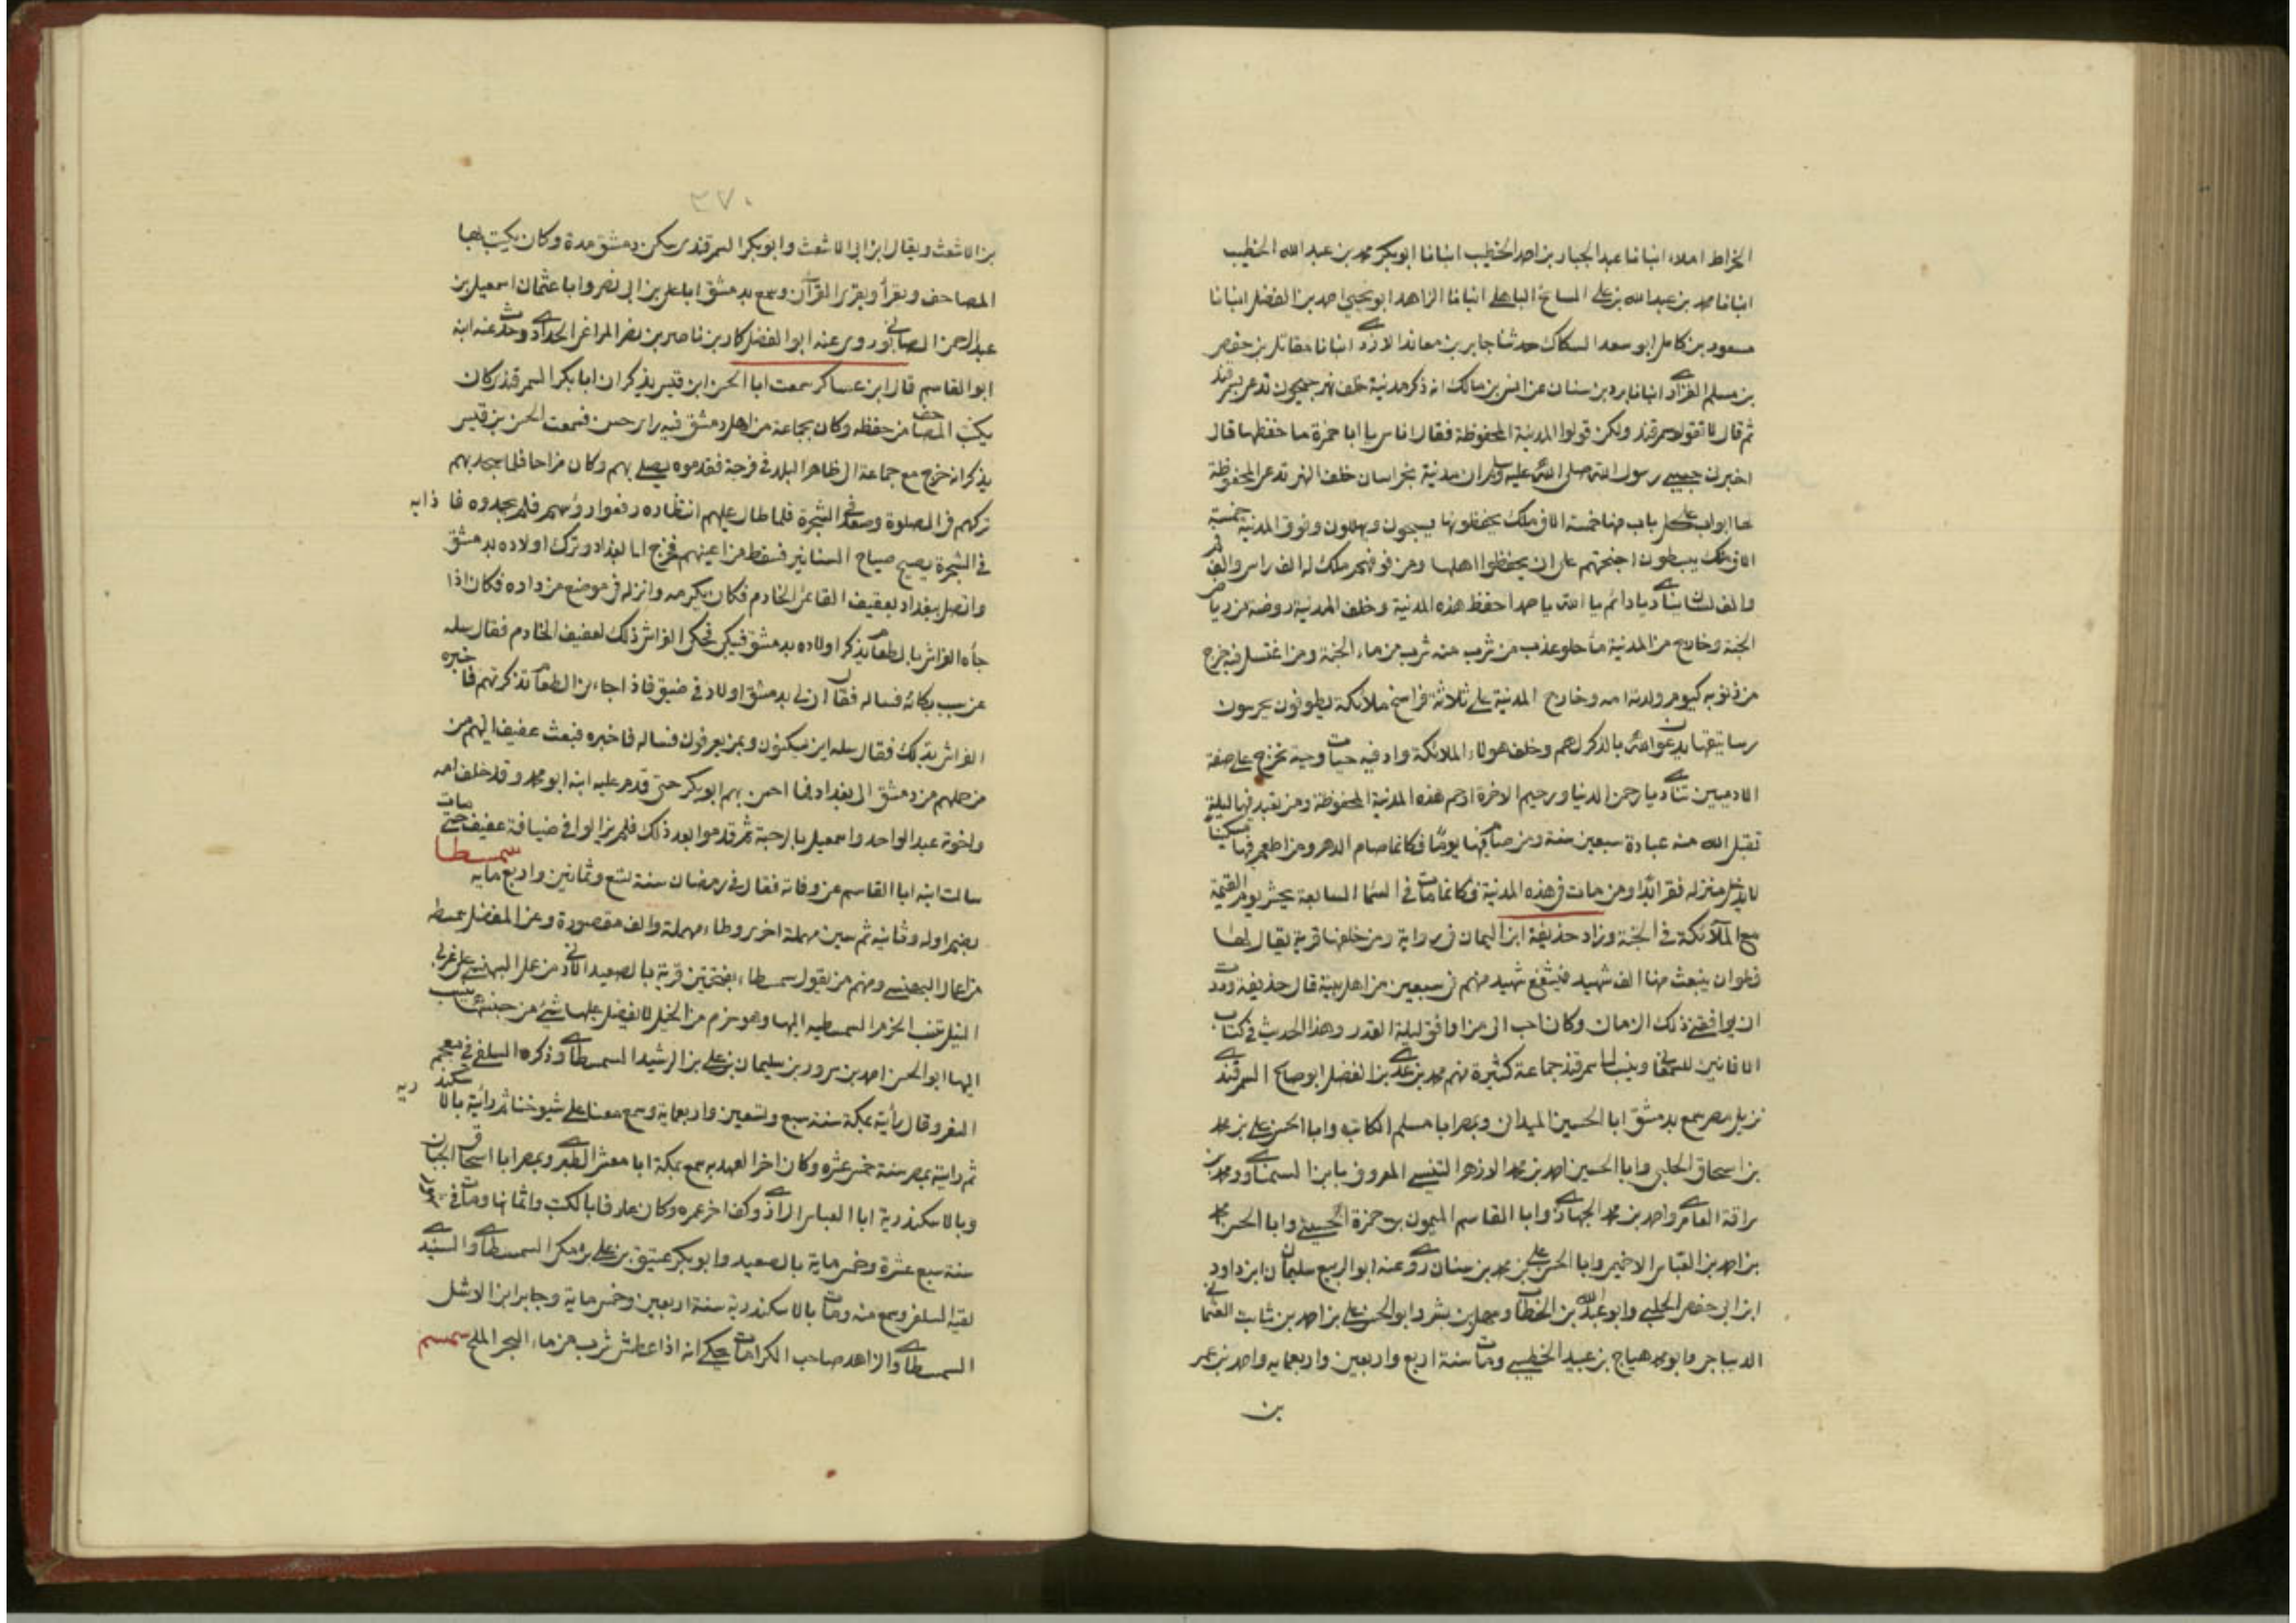 الخراط املاء انبانا عبد الجبار بن احمد الخطيب انبانا ابو بكر محمد بن عبد الله الخطيب
انبانا محمد بن عبد الله بن علي السايح الباهلي انبانا الزاهد ابو يحيى احمد بن الفضل انبانا
مسعود بن كامل ابو سعد السكاك حدثنا جابر بن معاذ الازدي انبانا مقاتل بن حفص
بن مسلم الفزاري انبانا برد بن سنان عن انس بن مالك انه ذكر مدينة خلف نهر جيحون تدعى سمرقند
ثم قال لا تقولوا سمرقند ولكن قولوا المدينة المحفوظة فقال اناس يا ابا حمزة ما حفظها قال
اخبرني حبيبي رسول الله صلى الله عليه وسلم ان مدينة بخراسان خلف النهر تدعى المحفوظة
لها ابواب على كل باب منها خمسة الاف ملك يحفظونها يسبحون ويهللون وفوق المدينة خمسة
الاف ملك يبسطون اجنحتهم على ان يحفظوا اهلها ومن فوقهم ملك له الف راس والف فم
والف لسان ينادي يا دائم يا الله يا صمد احفظ هذه المدينة وخلف المدينة روضة من رياض
الجنة وخارج من المدينة ماء حلو عذب من شرب منه شرب من ماء الجنة ومن اغتسل فيه خرج
من ذنوبه كيوم ولدته امه وخارج المدينة على ثلاثة فراسخ ملائكة يطوفون يحرسون
رساتيقها يدعون الله بالذكر لهم وخلف هولاء الملائكة واد فيه حيات وحية تخرج على صفة
الادميين تنادي يا رحمن الدنيا ورحيم الاخرة ارحم هذه المدينة المحفوظة ومن تعبد فيها ليلة
تقبل الله منه عبادة سبعين سنة ومن صام فيها يوما فكانما صام الدهر ومن اطعم فيها مسكينا
لا يدخل منزله فقر ابدا ومن مات في هذه المدينة فكانما مات في السما السابعة يحشر يوم القيمة
مع الملائكة في الجنة وزاد حذيفة ابن اليمان في رواية ومن خلفها قرية يقال لها
قطوان يبعث منها الف شهيد فيشفع شهيد منهم في سبعين من اهل بيته قال حذيفة وددت
ان يوافقني ذلك الزمان وكان احب الى من اوافق ليلة القدر وهذا الحديث في كتاب
الافانين للسمعاني وينسب لسمرقند جماعة كثيرة منهم محمد بن عدي بن الفضل ابو صالح السمرقندي
نزيل مصر سمع بدمشق ابا الحسين الميداني وبمصر ابا مسلم الكاتب وابا الحسن علي بن محمد
بن اسحاق الحلبي وابا الحسين احمد بن محمد الازهر التنيسي المعروف بابن السمناوي ومحمد بن
سراقة العامري واحمد بن محمد الجهاري وابا القاسم الميمون بن حمزة الحسيني وابا الحسن محمد
بن احمد بن العباس الاخميمي وابا الحسن علي بن محمد بن سنان روى عنه ابو الربيع سليمان ابن داود
ابن ابي حفص الجلبي وابو عبد الله بن الخطاب وسهل بن بشر وابو الحسن علي بن احمد بن ثابت العثماني
الديباجي وابو محمد هياج بن عبيد الخطيبي ومات سنة اربع واربعين واربعمايه واحمد بن عمر
بن
٣٧٠
بن الاشعث ويقال ابن ابي الاشعث وابو بكر السمرقندي سكن دمشق مدة وكان يكتب بها
المصاحف ويقرأ ويقري القرآن وسمع بدمشق ابا علي بن ابي نصر وابا عثمان اسمعيل بن
عبد الرحمن الصابوني وروى عنه ابو الفضل كاد بن ناصر بن نصر المراغي الحدادي وحدث عنه ابنه
ابو القاسم قال ابن عساكر سمعت ابا الحسن ابن قيس يذكر ان ابا بكر السمرقندي كان
يكتب المصاحف من حفظه وكان بجماعة من اهل دمشق فيه راى حسن فسمعت الحسن بن قيس
يذكر انه خرج مع جماعة الى ظاهر البلد في فرجة فقدموه يصلي بهم وكان مزاحا فلما سجد بهم
تركهم في الصلوة وصعد في الشجرة فلما طال عليهم انتظاره رفعوا رؤسهم فلم يجدوه فا ذا به
في الشجرة يصيح صياح السنانير فسقط من اعينهم فخرج الى بغداد وترك اولاده بدمشق
واتصل ببغداد بعفيف القائمي الخادم فكان يكرمه وانزله في موضع من داره فكان اذا
جأه الفراش بالطعام يذكر اولاده بدمشق فيبكي فحكى الفراش ذلك لعفيف الخادم فقال سله
عن سبب بكائه فساله فقال ان لي بدمشق اولاد في ضيق فاذا جاءني الطعام تذكرتهم فاخبره
الفراش بذلك فقال سله اين يسكنون وبمن يعرفون فساله فاخبره فبعث عفيف اليهم من
من حملهم من دمشق الى بغداد فما احس بهم ابو بكر حتى قدم عليه ابنه ابو محمد وقد خلف امه
واخوته عبد الواحد واسمعيل بالرحبة ثم قدموا بعد ذلك فلم يزالوا في ضيافة عفيف حتى مات
سالت ابنه ابا القاسم عن وفاته فقال في رمضان سنة تسع وثمانين واربع مايه سمسطا
بضم اوله وثانيه ثم سين مهملة اخرى وطاء مهملة والف مقصورة وعن المفضل سمسطه
من اعمال البهنسى ومنهم من يقول سمسطاء بفتحتين قرية بالصعيد الادنى من عمل البهنسى على غربي
النيل تنسب الخزم السمسطية اليها وهو حزم من الخيل لا يفضل عليها شيء من جنسها ينسب
اليها ابو الحسن احمد بن سرور بن سليمان بن علي بن الرشيد السمسطاي وذكره السلفي في معجم
السفر وقال رأيته بمكة سنة سبع وتسعين واربعماية وسمع معنا على شيوخنا ثم رأيته بالاسكند ريه
ثم رايته بمصر سنة خمس عشرة وكان اخر العهد به سمع بمكة ابا معشر الطبري وبمصر ابا اسحاق الحبال
وبالاسكندرية ابا العباس الرازي وكف اخر عمره وكان عارفا بالكتب واثمانها ومات في
سنة سبع عشرة وخمس ماية بالصعيد وابو بكر عتيق بن علي بن مكي السمسطاي والسندي
لقيه السلفي وسمع منه ومات بالاسكندرية سنة اربعين وخمس ماية وجابر ابن الاشل
السمسطاي والزاهد صاحب الكرامات حكي انه اذا عطش شرب من ماء البحر الملح سمسم